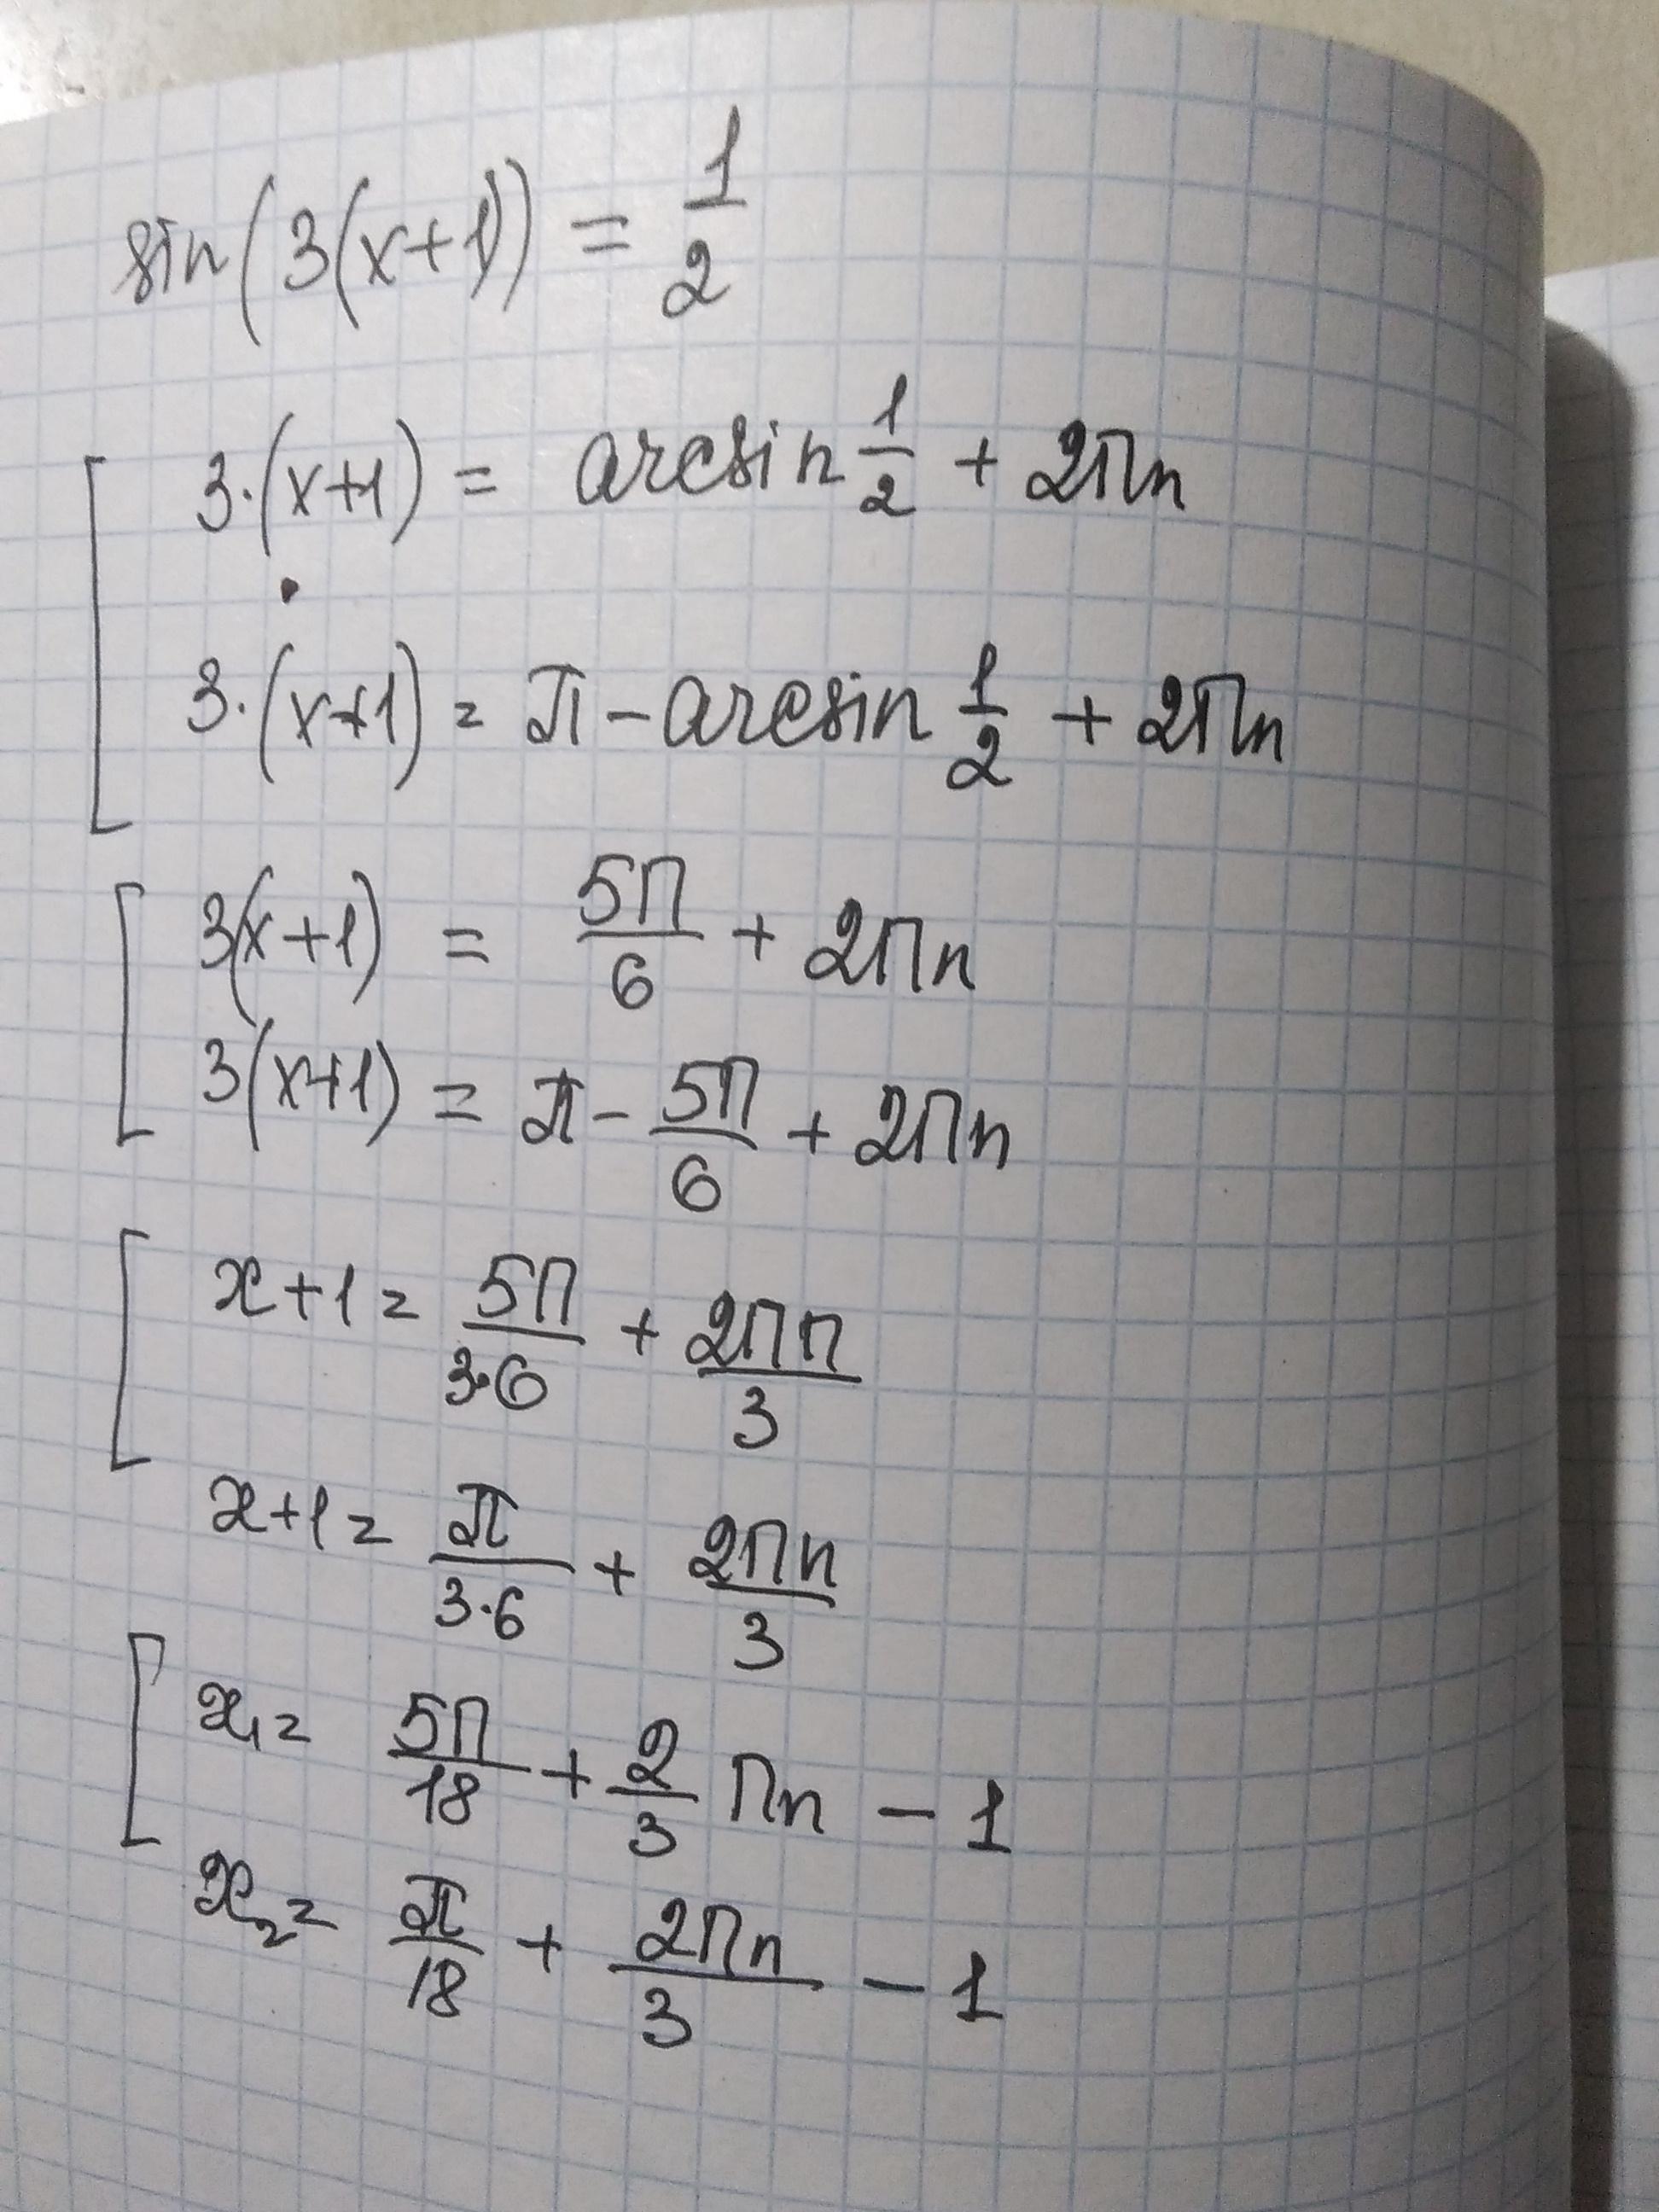 sin(3(x+1)) = 1/2
3·(x+1) = arcsin 1/2 + 2πn
3·(x+1) = π - arcsin 1/2 + 2πn
3(x+1) = 5π/6 + 2πn
3(x+1) = π - 5π/6 + 2πn
x+1 = 5π/3·6 + 2πn/3
x+1 = π/3·6 + 2πn/3
x₁ = 5π/18 + 2/3 πn - 1
x₂ = π/18 + 2πn/3 - 1